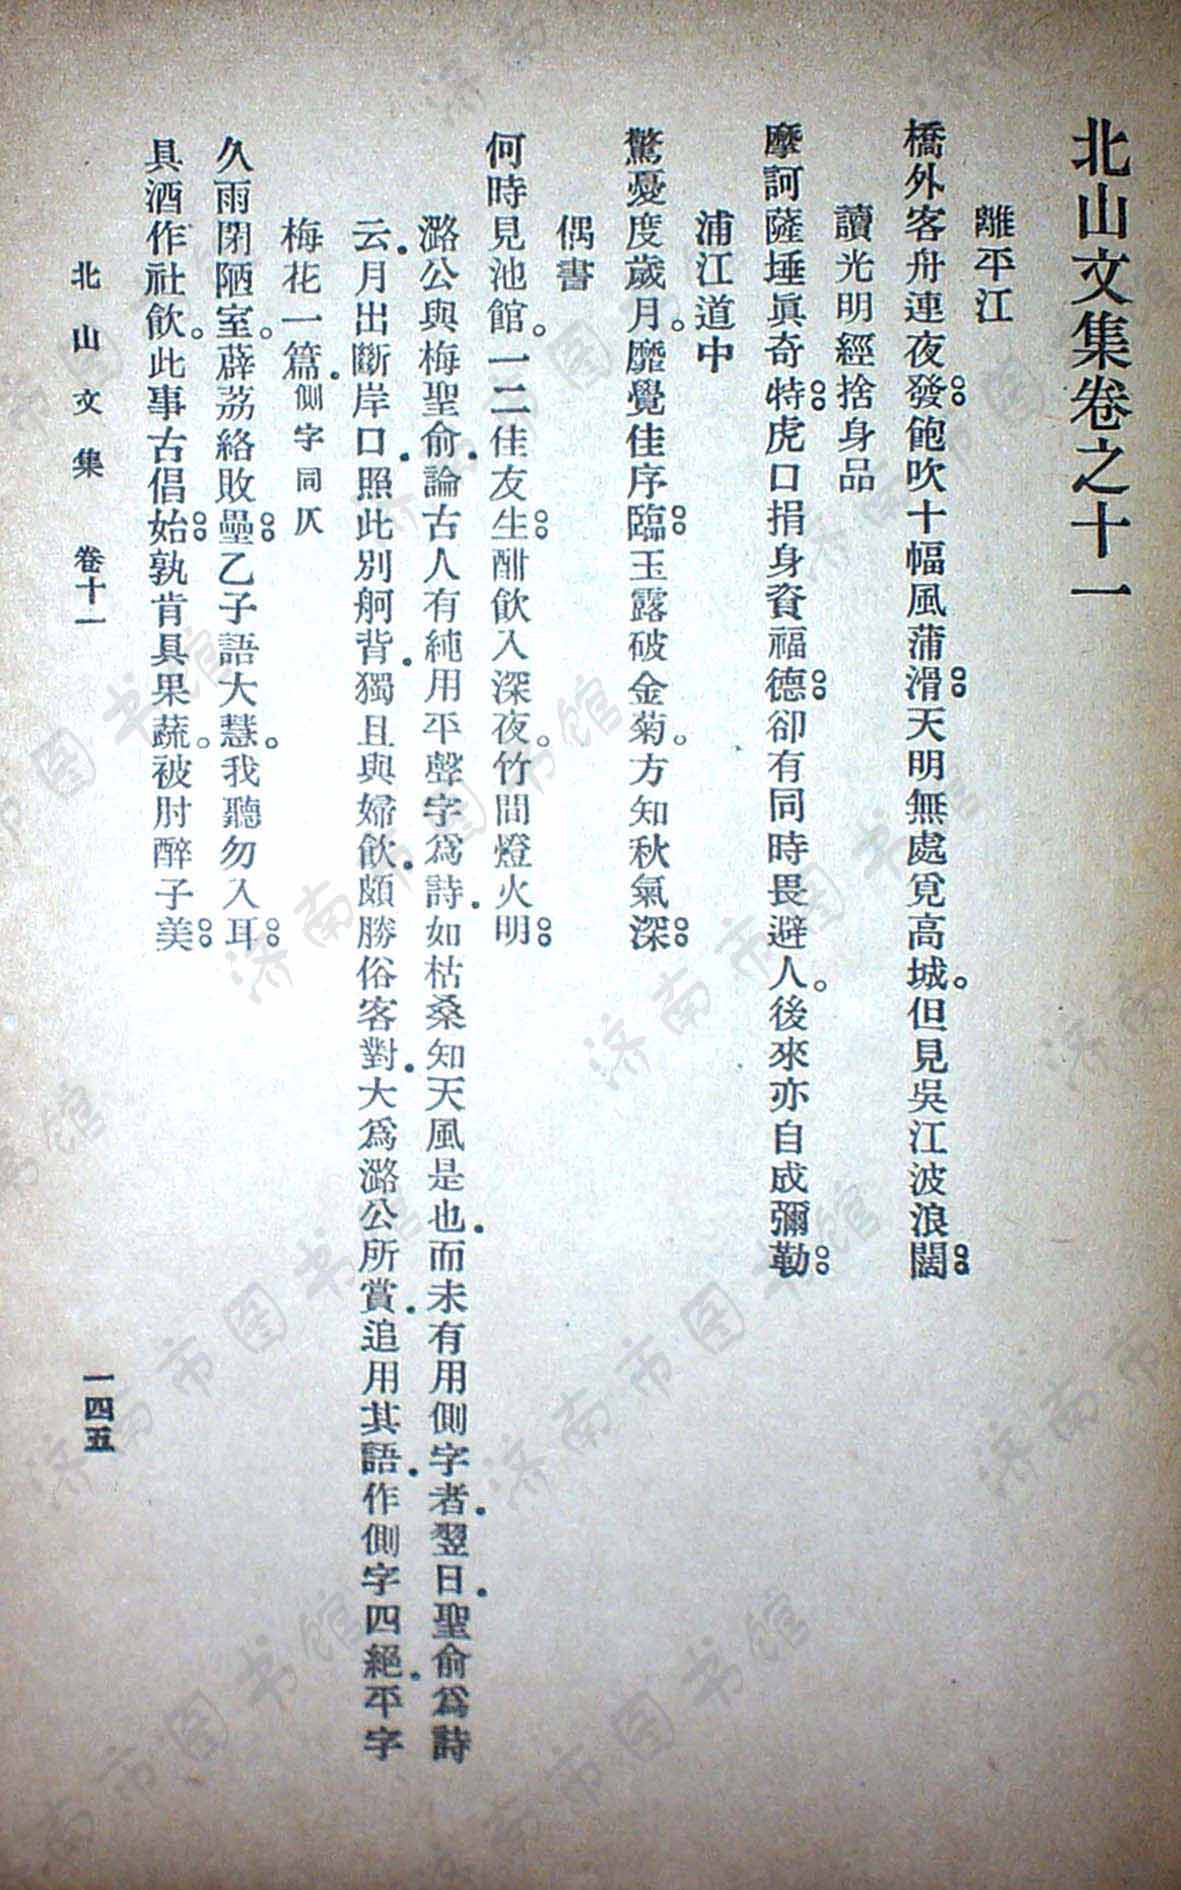 北山文集卷之十一
離平江
橋外客舟連夜發。飽吹十幅風蒲滑。天明無處覓高城。但見吳江波浪闊。
讀光明經捨身品
摩訶薩埵眞奇特。虎口捐身資福德。卻有同時畏避人。後來亦自成彌勒。
浦江道中
驚憂度歲月。靡覺佳序臨。玉露破金菊。方知秋氣深。
偶書
何時見池館。一二佳友生。酣飲入深夜。竹間燈火明。
潞公與梅聖俞論古人有純用平聲字爲詩。如枯桑知天風是也。而未有用側字者。翌日。聖俞爲詩
云。月出斷岸口。照此別舸背。獨且與婦飲。頗勝俗客對。大爲潞公所賞。追用其語。作側字四絕。平字
梅花一篇。側字同仄
久雨閉陋室。薜荔絡敗壘。乙子語大慧。我聽勿入耳。
具酒作社飲。此事古倡始。孰肯具果蔬。被肘醉子美。
北山文集 卷十一
一四五
济南市图书馆